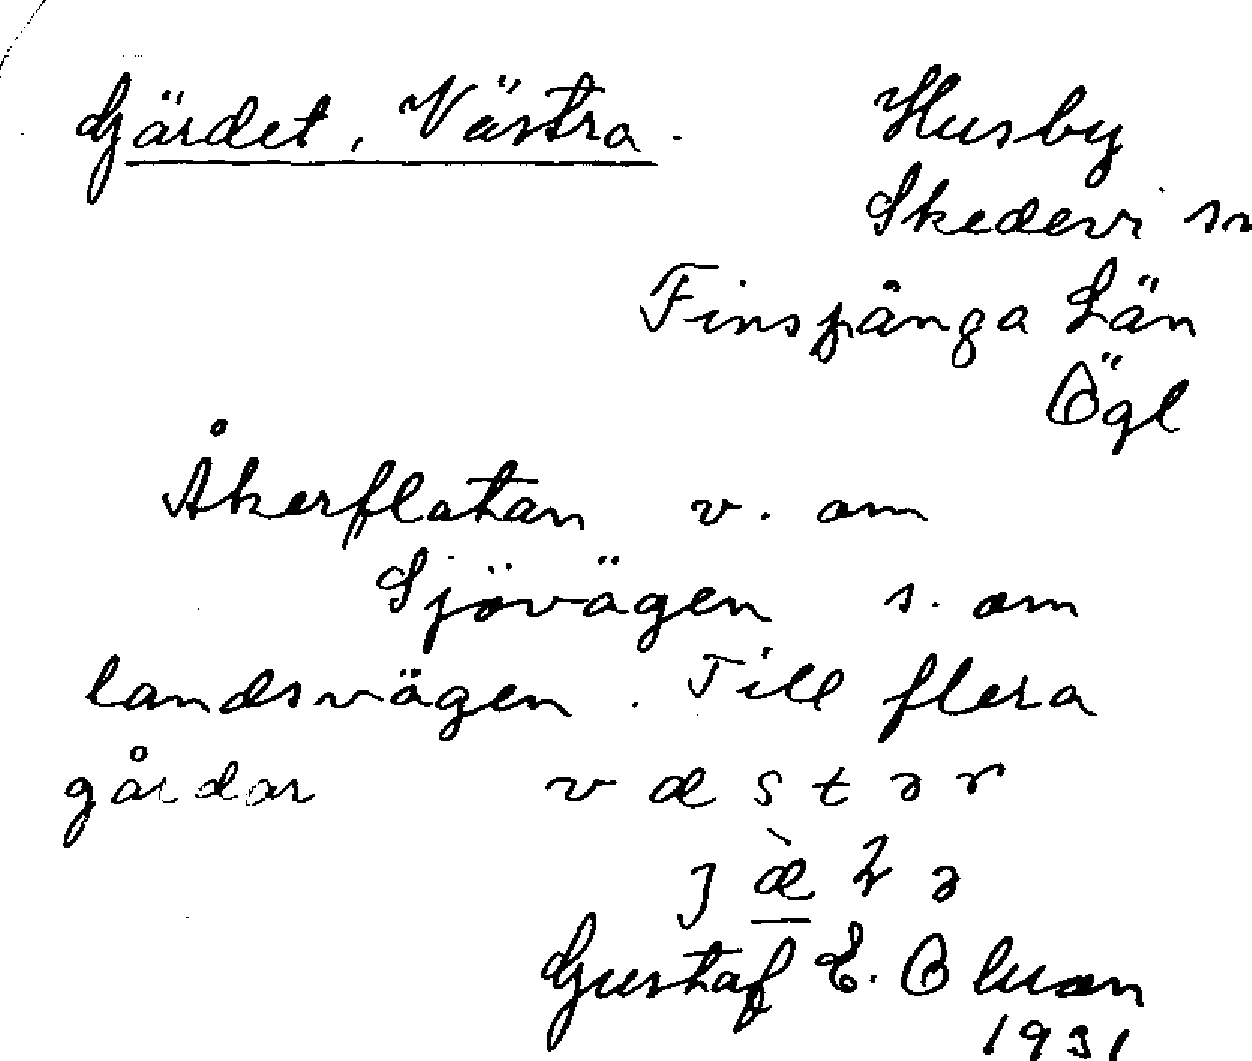 Gärdet, Västra.
Husby
Skedevi sn
Finspånga Län
Ögl
Åkerflatan v. om
Sjövägen s. om
landsvägen. Till flera
gårdar væstər
Gustaf E.
1931